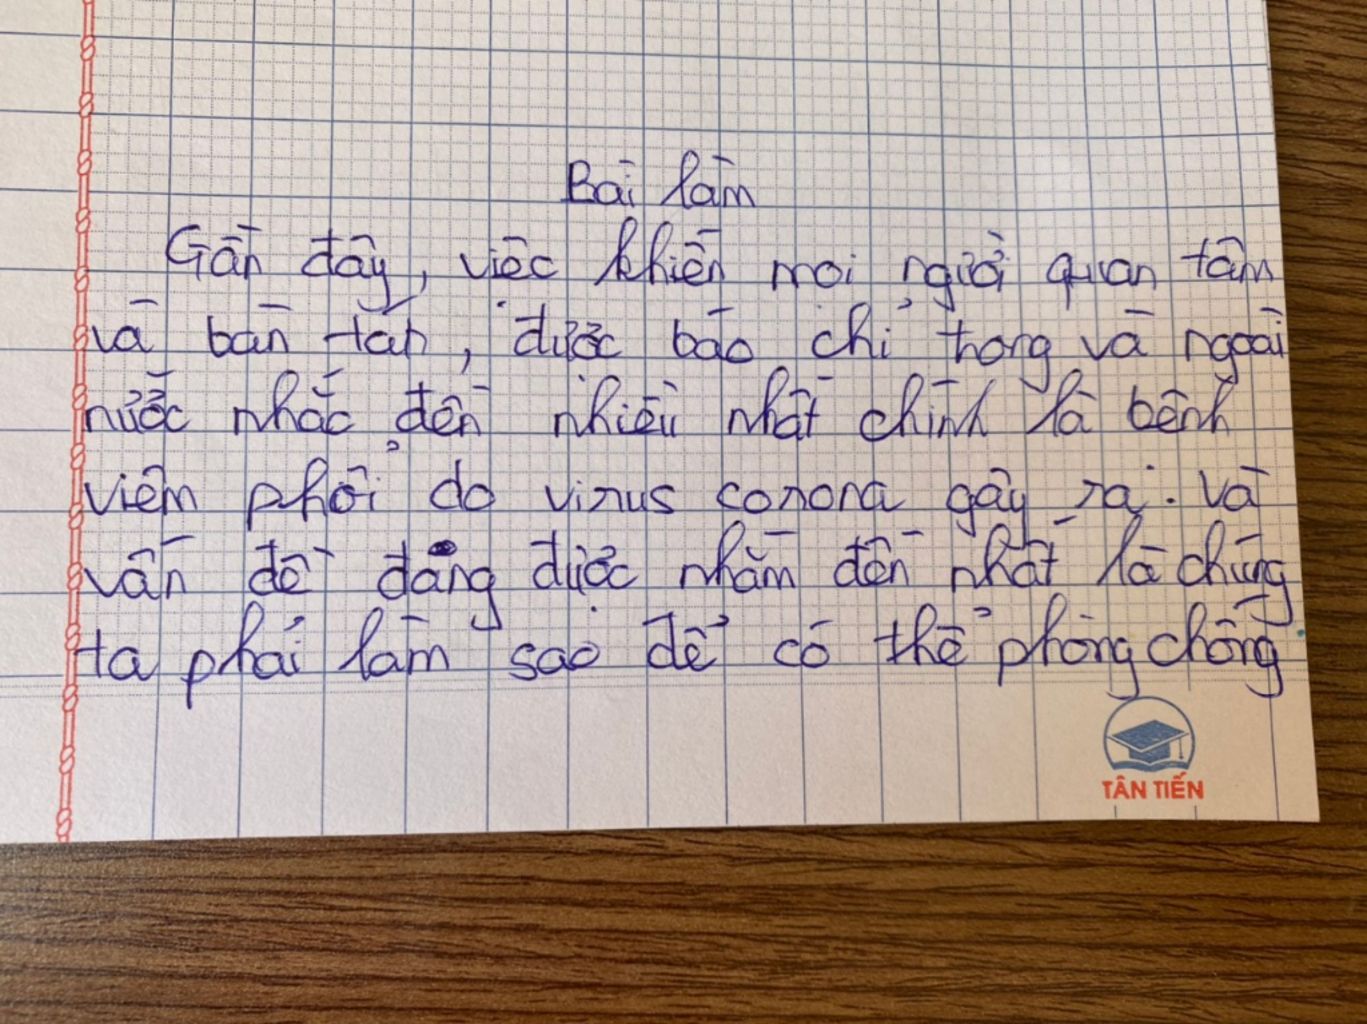 Bài làm
Gần đây, việc khiến mọi người quan tâm
và bàn tán, được báo chí trong và ngoài
nước nhắc đến nhiều nhất chính là bệnh
viêm phổi do virus corona gây ra. Và
vấn đề đáng được nhắm đến nhất là chúng
ta phải làm sao để có thể phòng chống
TÂN TIẾN